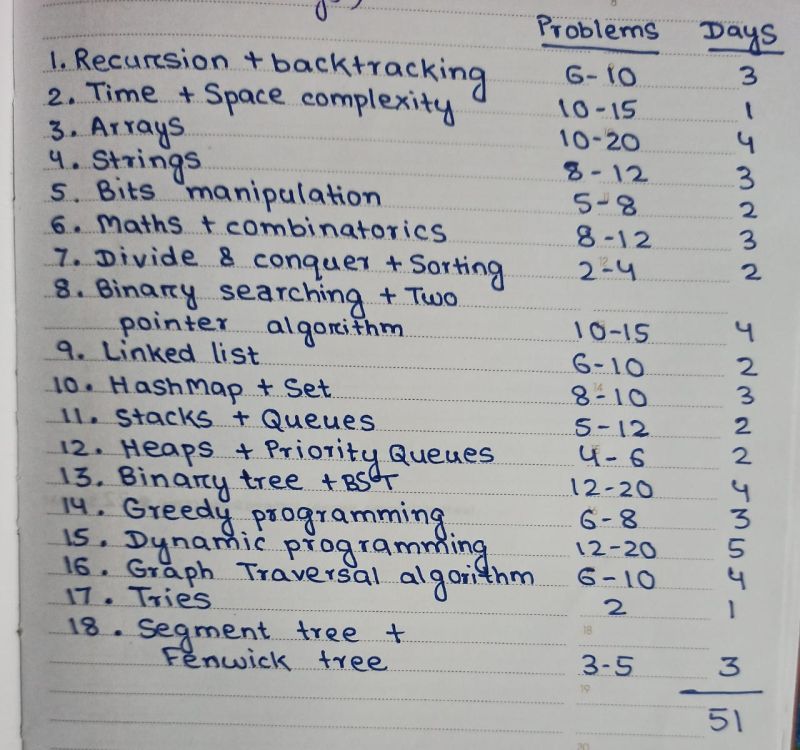 Problems Days
1. Recursion + backtracking 6-10 3
2. Time + Space complexity 10-15 1
3. Arrays 10-20 4
4. Strings 8-12 3
5. Bits manipulation 5-8 2
6. Maths + combinatorics 8-12 3
7. Divide & conquer + Sorting 2-4 2
8. Binary searching + Two
pointer algorithm 10-15 4
9. Linked list 6-10 2
10. HashMap + Set 8-10 3
11. Stacks + Queues 5-12 2
12. Heaps + Priority Queues 4-6 2
13. Binary tree + BST 12-20 4
14. Greedy programming 6-8 3
15. Dynamic programming 12-20 5
16. Graph Traversal algorithm 6-10 4
17. Tries 2 1
18. Segment tree +
Fenwick tree 3-5 3
51